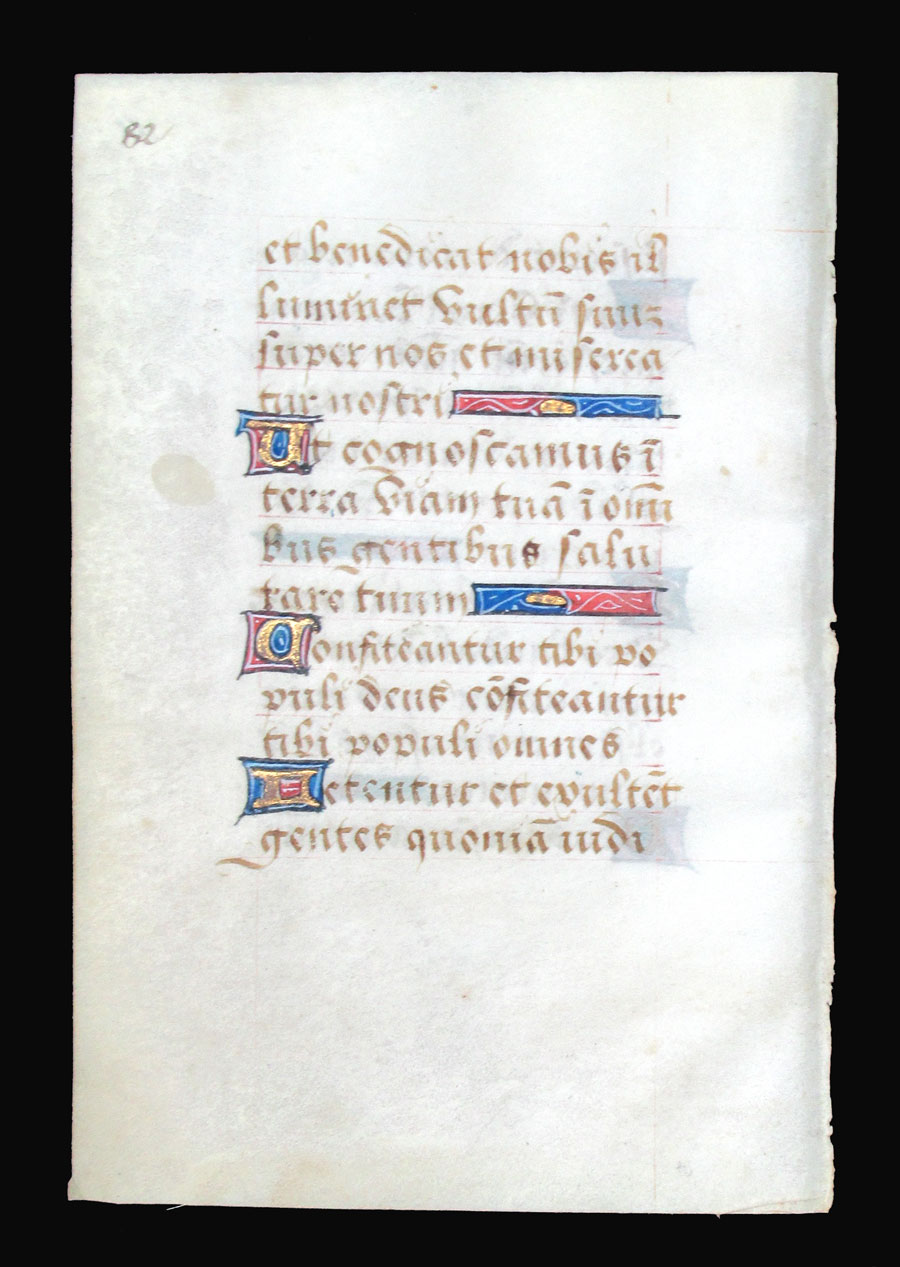 82
et benedicat nobis il
luminet vultū suuz
super nos et miserea
tur nostri
Ut cognoscamus ī
terra viam tuā ī omni
bus gentibus salu
tare tuum
Confiteantur tibi po
puli deus cōfiteantur
tibi populi omnes
Letentur et exultēt
gentes quoniā iudi